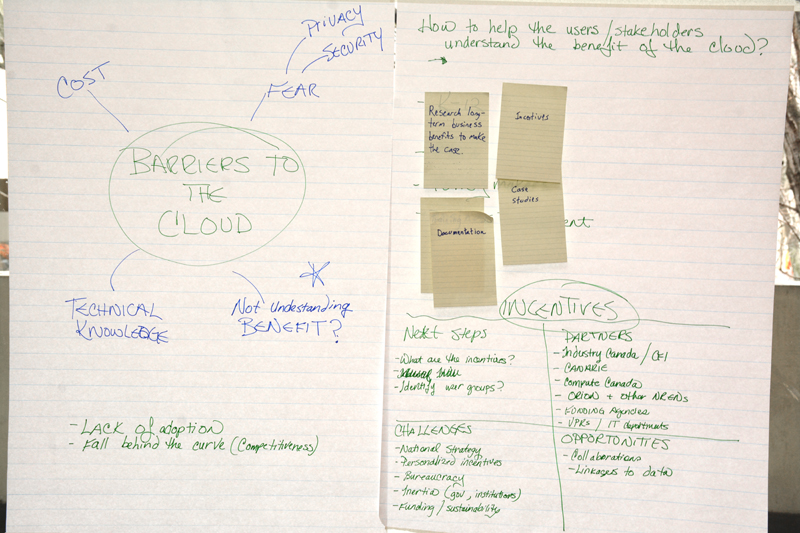 PRIVACY
SECURITY
COST
FEAR
BARRIERS TO
THE
CLOUD
TECHNICAL
KNOWLEDGE
Not Undestanding
BENEFIT?
- LACK of adoption
- Fall behind the curve (Competitiveness)
How to help the users / stakeholders
understand the benefit of the cloud?
Research long-
term business
benefits to make
the case.
Incetives
Case
Studies
Documentation
INCENTIVES
Next Steps
- What are the incentives?
- Identify user groups?
PARTNERS
- Industry Canada / CFI
- CANARIE
- Compute Canada
- ORION + other NRENs
- FUNDING Agencies
- VPRs / IT departments
CHALLENGES
- National Strategy
- Personalized incentives
- Bureaucracy
- Inertia (gov, institutions)
- Funding / sustainability
OPPORTUNITIES
- Collaborations
- Linkages to data